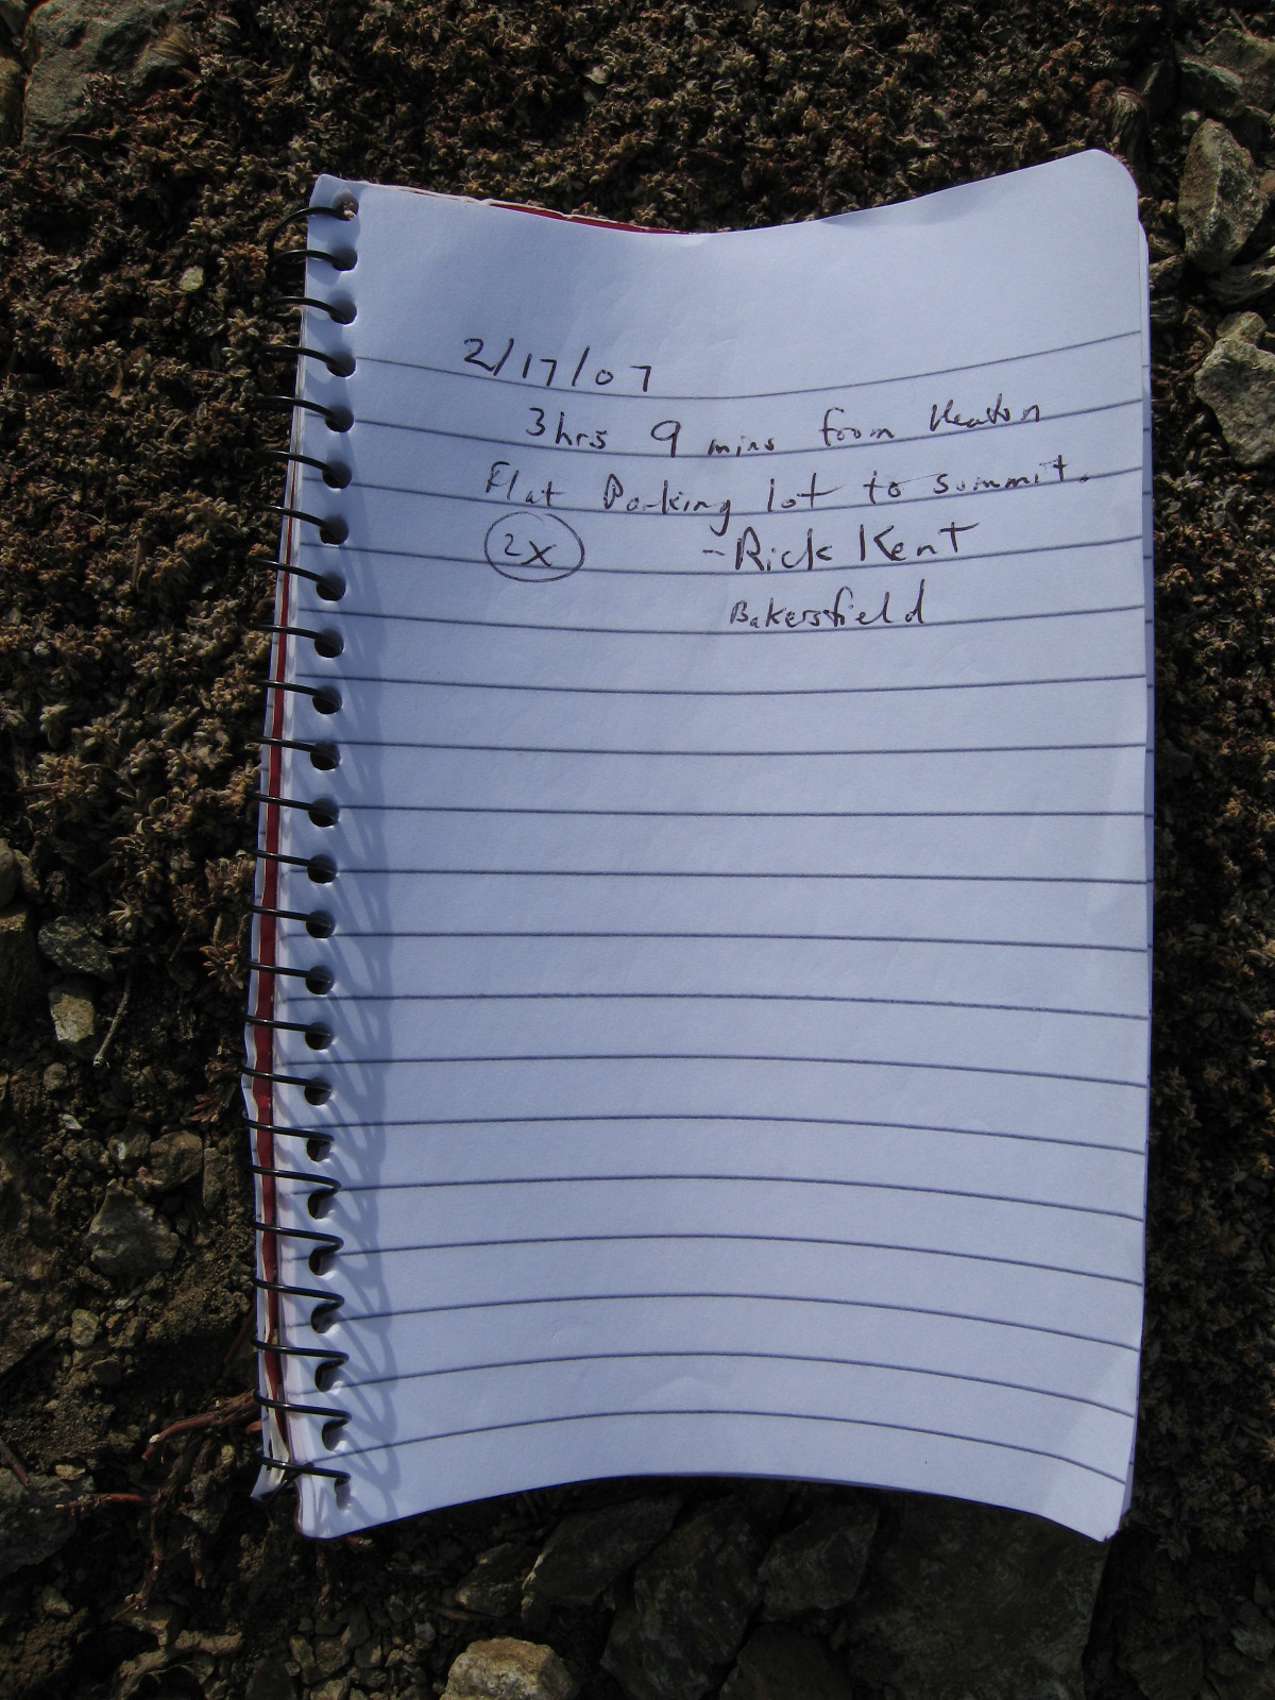 2/17/07
3hrs 9 mins from Heaton
Flat Parking lot to summit.
2x -Rick Kent
Bakersfield